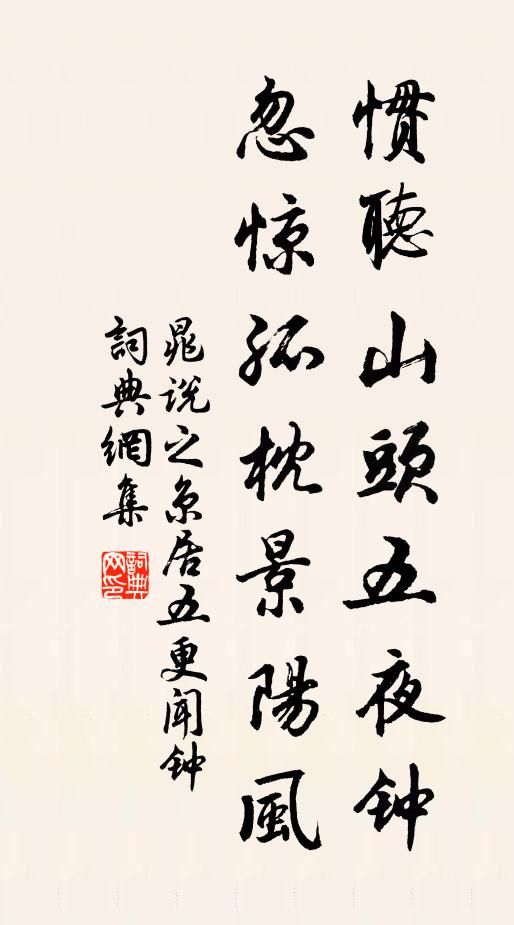 慣聽山頭五夜钟
忽惊孤枕景陽風
晁说之京居五更闻钟
詞典網集
詞典网印